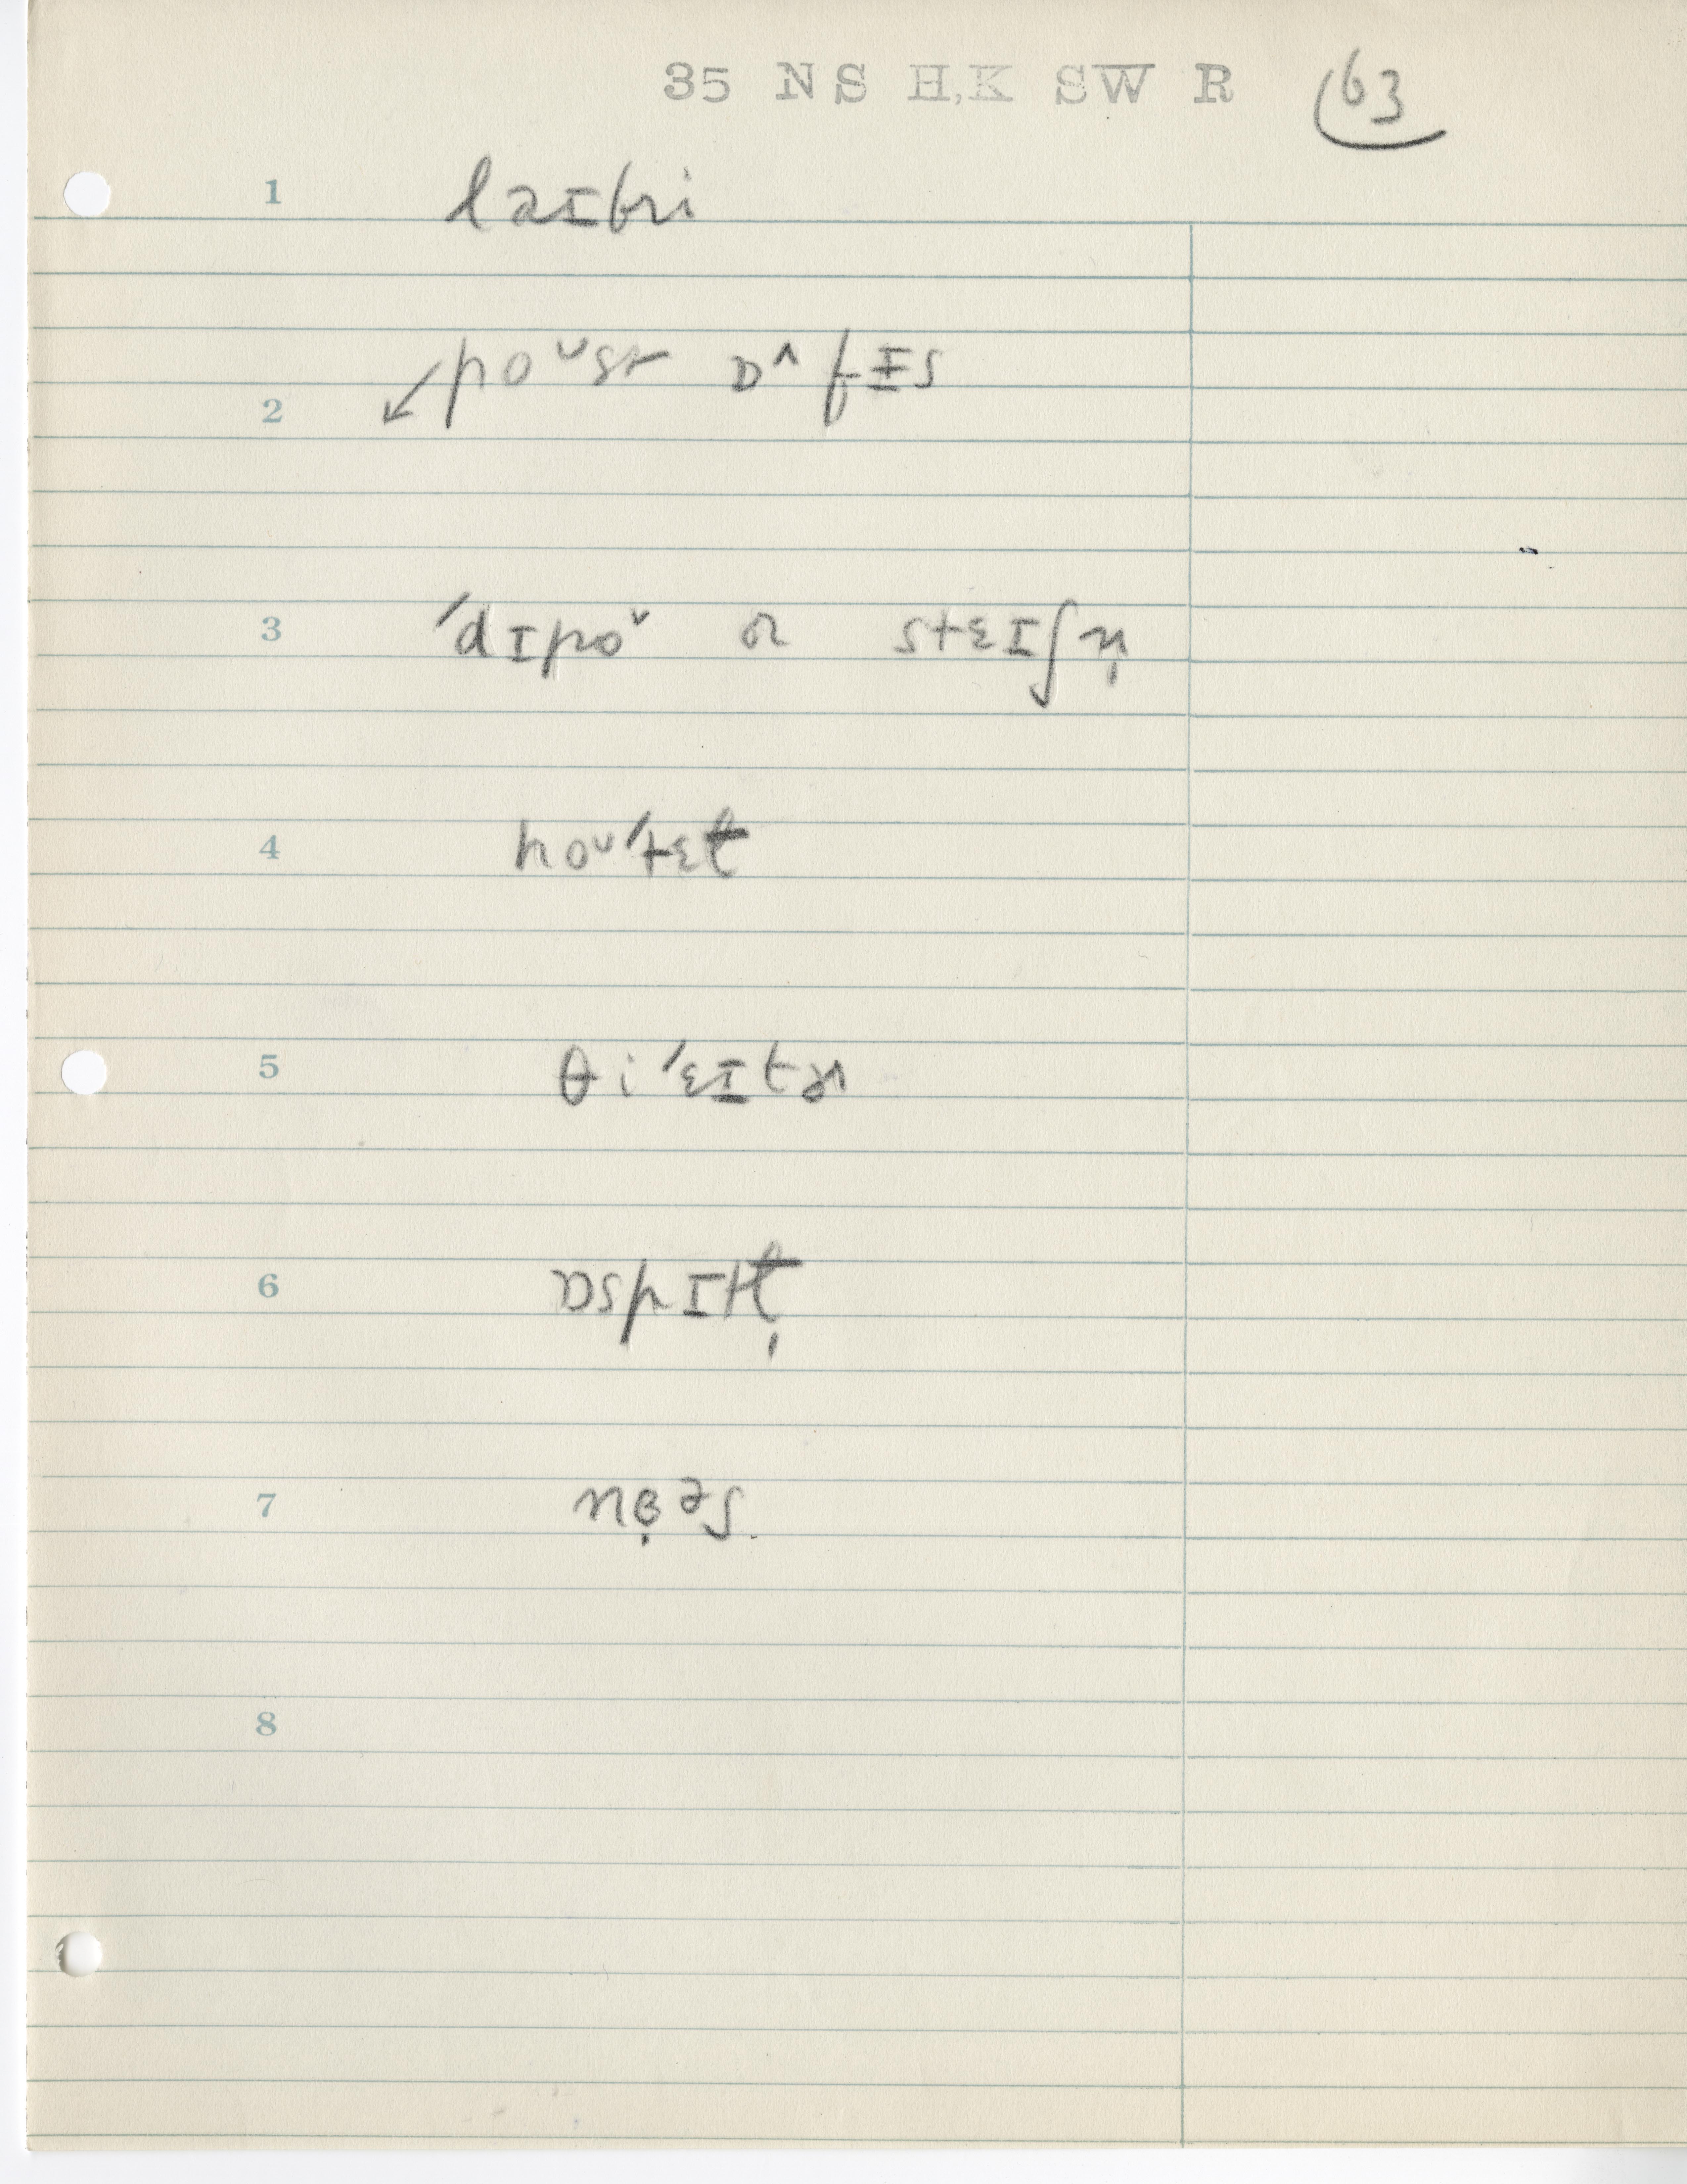 35 NS H,K SW R 63
1 laɪbri
2 ↙ poᴗst ɒ^ fɪs
3 ˈdɪpoˇ or stɛɪʃn̩
4 hoᴗˈtɛɫ
5 θiˈɛɪtɚ
6 ɒspɪtɫ̩
7 nɞ̣əs
8